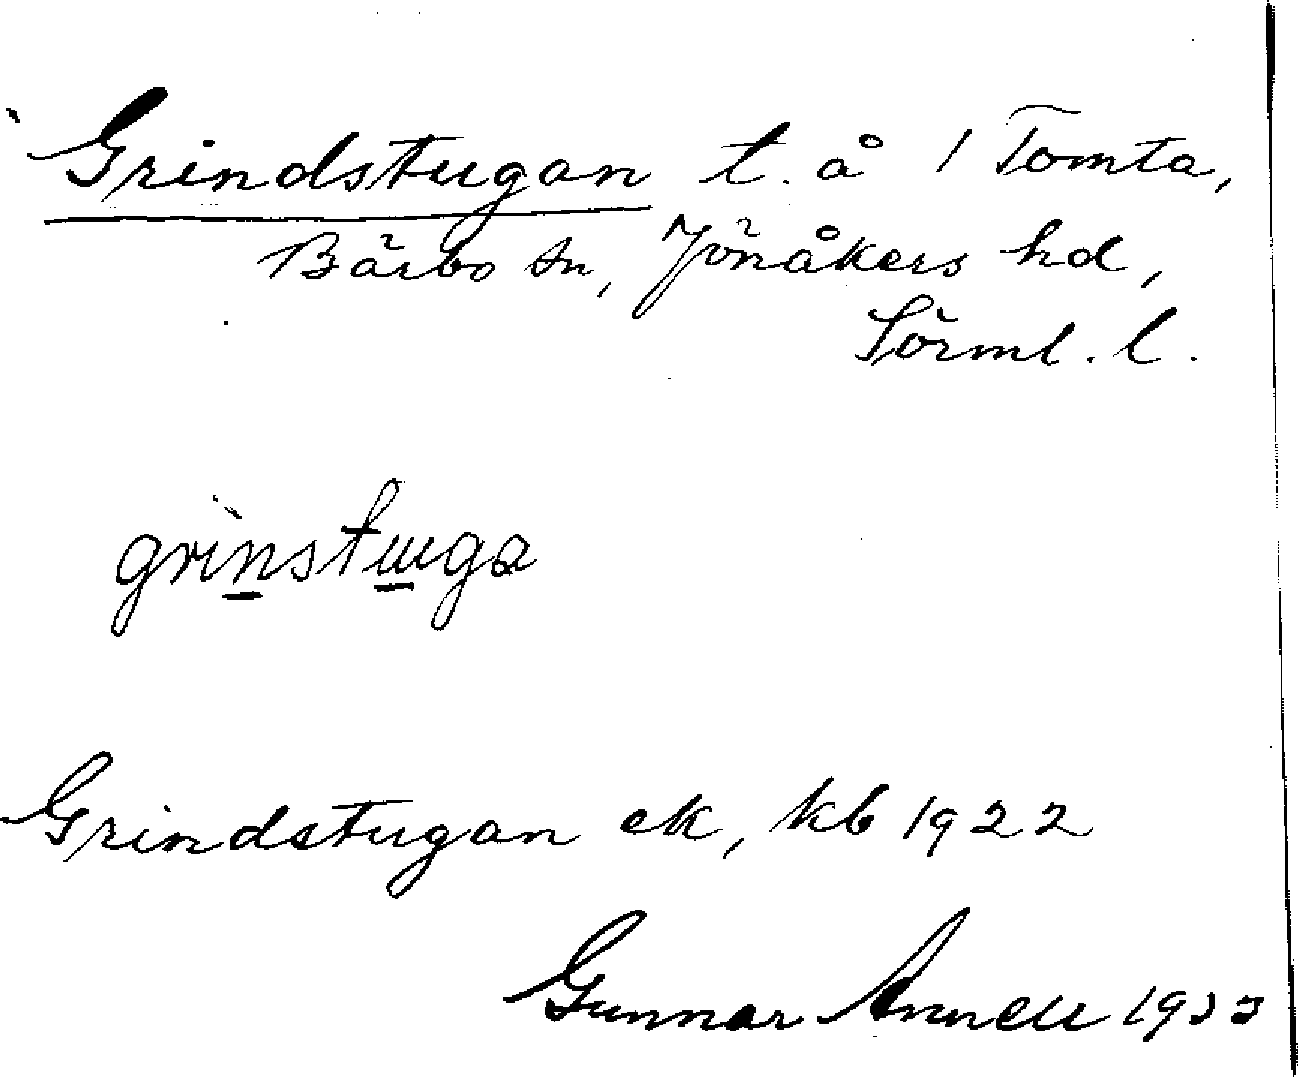 Grindstugan t. å 1 Tomta,
Bärbo sn, Jönåkers hd,
Sörml. l.
grìnstuga
Grindstugan ek, kb 1922
Gunnar Annell 1933